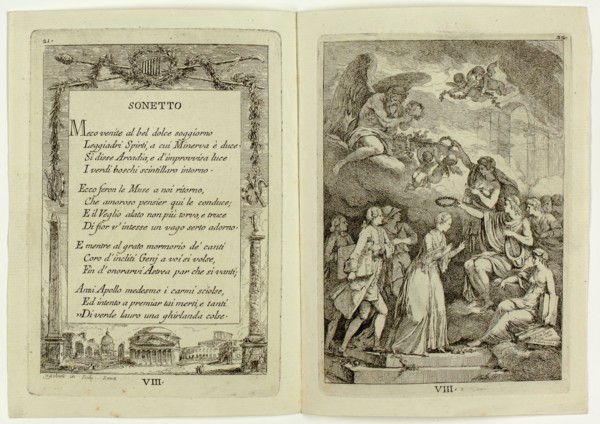 21.
SONETTO
Meco venite al bel dolce soggiorno
Leggiadri Spirti, a cui Minerva è duce.
Sì disse Arcadia, e d'improvvisa luce
I verdi boschi scintillaro intorno.
Ecco feron le Muse a noi ritorno,
Che amoroso pensier qui le conduce;
E il Veglio alato non più torvo, e truce
Di fior v'intesse un vago serto adorno.
E mentre al grato mormorio de' canti
Coro d'incliti Genj a voi si volse,
Fin d'onorarvi Astrea par che si vanti;
Anzi Apollo medesmo i carmi sciolse,
Ed intento a premiar tai merti, e tanti
"Di verde lauro una ghirlanda colse.
VIII.
VIII.